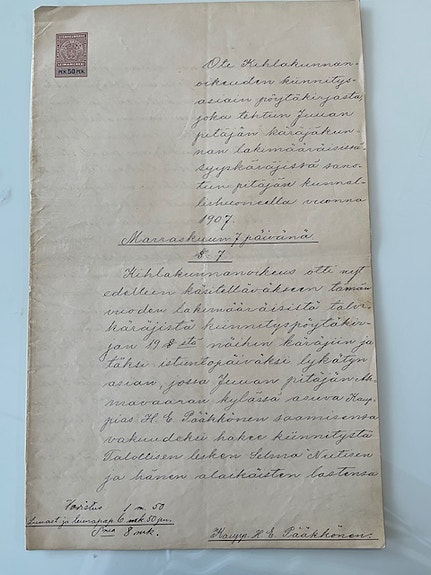 PEN. 50 PEN.
Ote Kihlakunnan-
oikeuden kiinnitys-
asiain pöytäkirjasta,
joka tehtiin Juuan
pitäjän käräjäkun-
nan lakimääräisissä
syyskäräjissä sano-
tun pitäjän kunnal-
lishuoneella vuonna
1907.
Marraskuun 7 päivänä
§ 7
Kihlakunnanoikeus otti nyt
edelleen käsiteltäväkseen tämän
vuoden lakimääräisistä talvi-
käräjistä kiinnityspöytäkir-
jan 19 § stä näihin käräjiin ja
täksi istuntopäiväksi lykätyn
asian, jossa Juuan pitäjän
kylässä asuva Kaup-
pias H. E. Pääkkönen saamisensa
vakuudeksi hakee kiinnitystä
Talollisen lesken Selma
ja hänen alaikäisten lastensa
1 m. 50
ja 6 mk. 50 pen.
8 mk.
Kaupp. H. E. Pääkkönen.